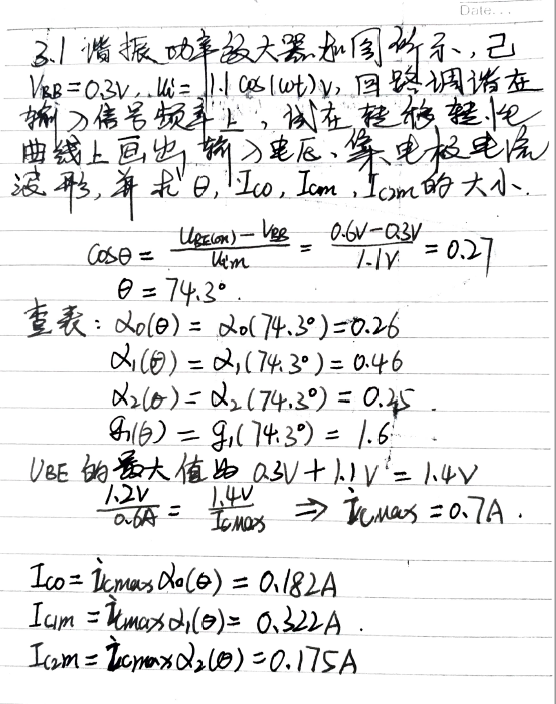 Date...
3.1 谐振功率放大器如图所示, 已
VBB=0.3V, ui=1.1cos(ωt)V, 回路调谐在
输入信号频率上, 试在转移特性
曲线上画出输入电压、集电极电流
波形, 并求θ, Ic0, Ic1m, Ic2m的大小.
cosθ = (UBE(on)-VBB)/Uim = (0.6V-0.3V)/1.1V = 0.27
θ = 74.3°.
查表: α0(θ) = α0(74.3°)=0.26
α1(θ) = α1(74.3°) = 0.46
α2(θ) = α2(74.3°) = 0.25.
g1(θ) = g1(74.3°) = 1.6
UBE 的最大值为 0.3V+1.1V = 1.4V
1.2V/0.6A = 1.4V/Icmax ⇒ icmax = 0.7A.
Ico = icmax α0(θ) = 0.182A
Ic1m = icmax α1(θ) = 0.322A.
Ic2m = icmax α2(θ) = 0.175A